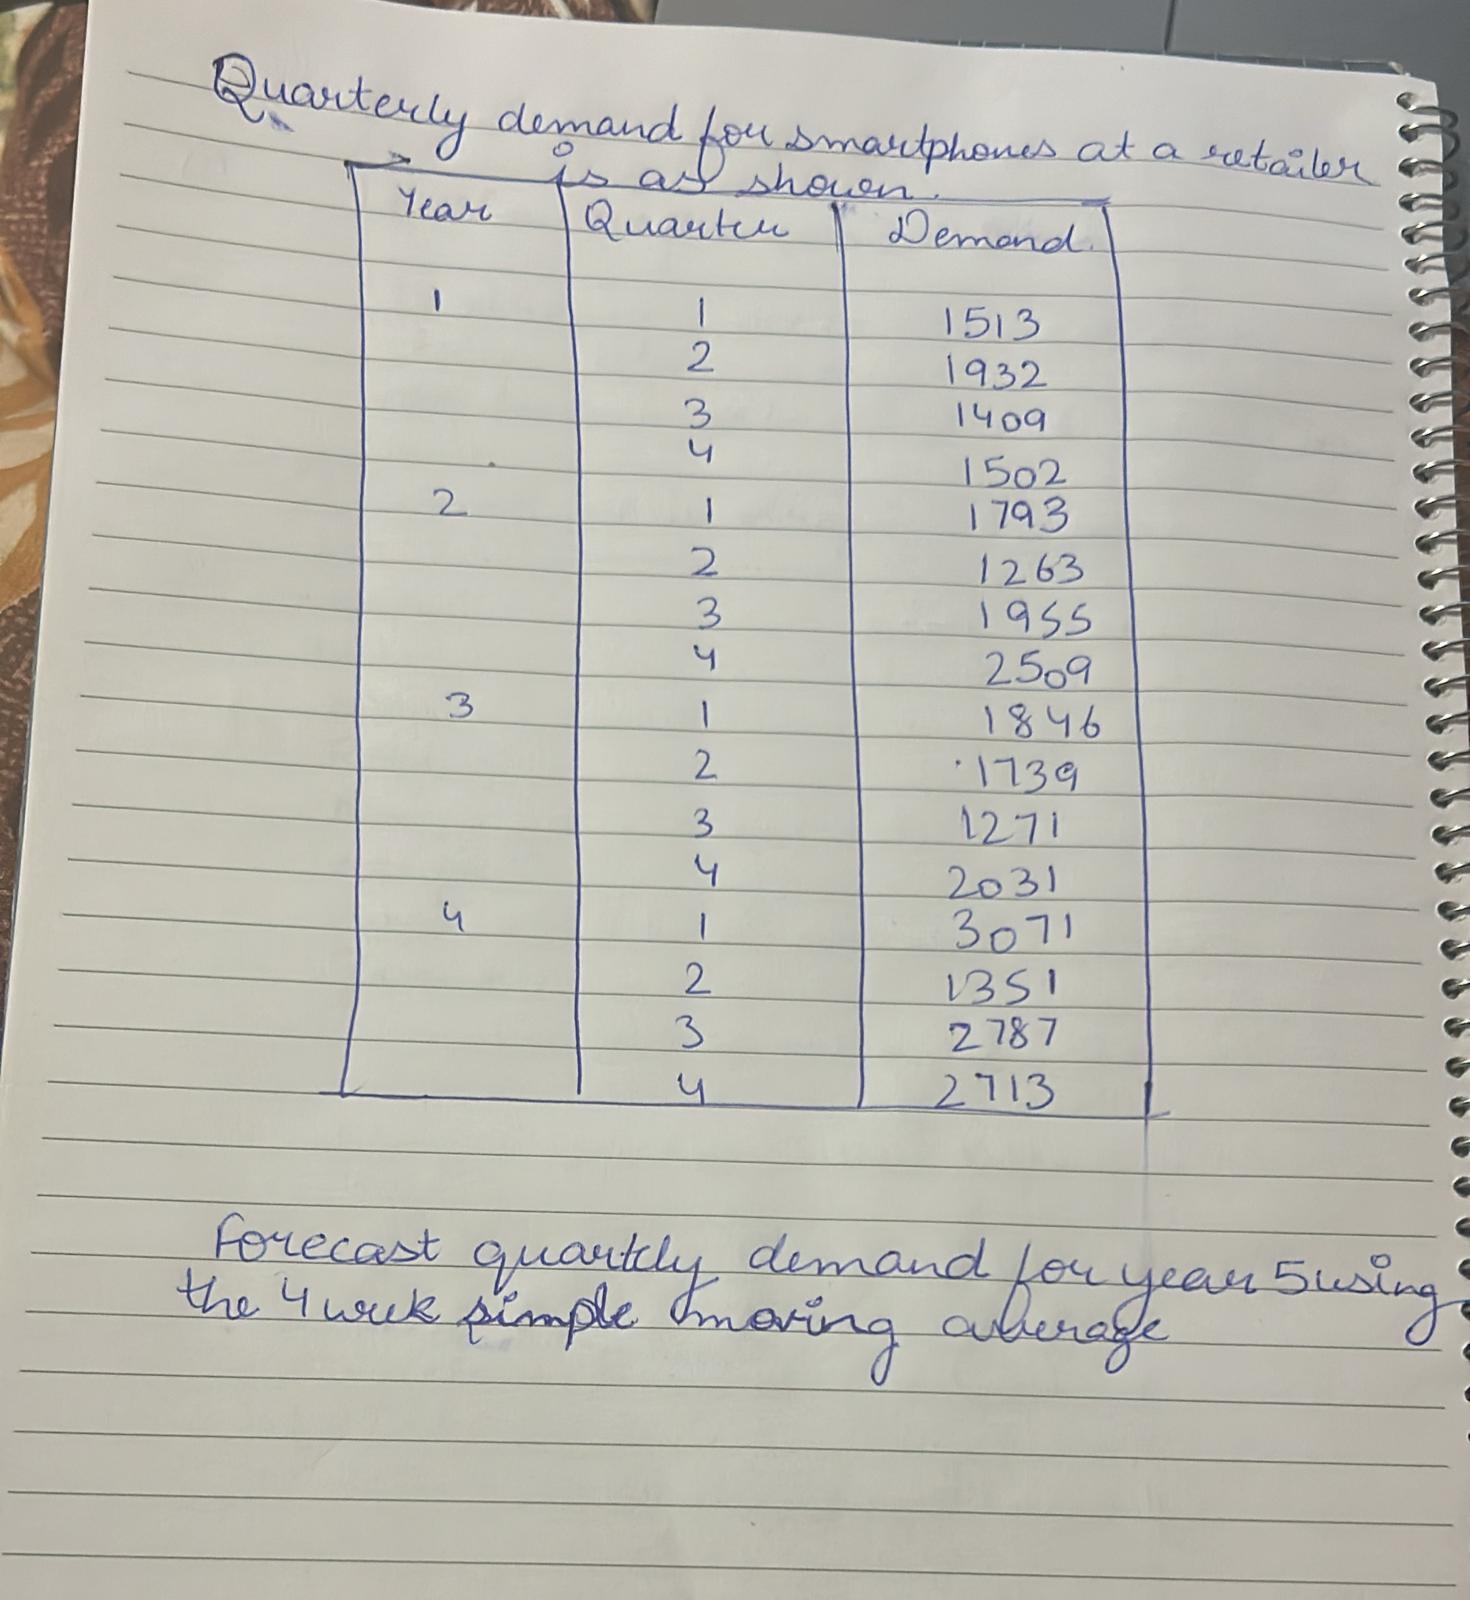 Quarterly demand for smartphones at a retailer
is as shown.
Year Quarter Demand.
1 1 1513
2 1932
3 1409
4 1502
2 1 1793
2 1263
3 1955
4 2509
3 1 1846
2 1739
3 1271
4 2031
4 1 3071
2 1351
3 2787
4 2713
Forecast quartely demand for year 5 using
the 4 week simple moving average